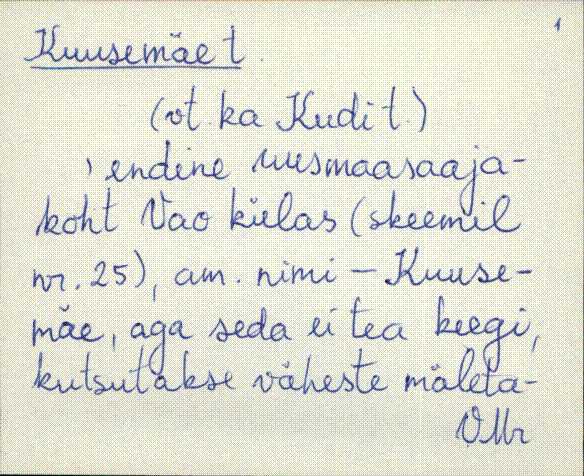 1
Kuusemäe t.
(vt. ka Kudi t.)
, endine uusmaasaaja-
koht Vao külas (skeemil
nr. 25), am. nimi - Kuuse-
mäe, aga seda ei tea keegi,
kutsutakse väheste mäleta-
VMr